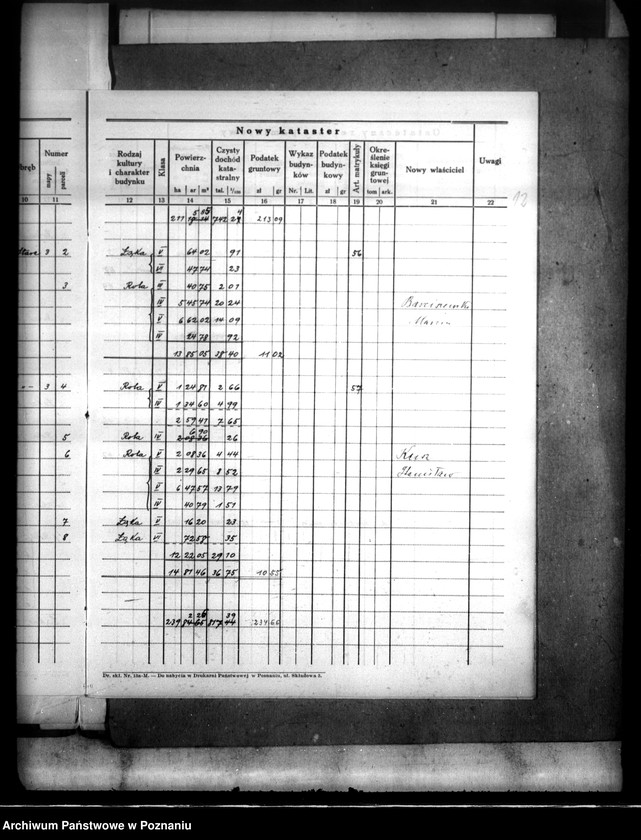 Nowy kataster
Numer
mapy parceli
Rodzaj kultury i charakter budynku
Klasa
Powierzchnia
ha ar m²
Czysty dochód katastralny
tal. 1/100
Podatek gruntowy
zł gr
Wykaz budynków
Nr. Lit.
Podatek budynkowy
zł gr
Art. matrykuły
Określenie księgi gruntowej
tom ark.
Nowy właściciel
Uwagi
10 11 12 13 14 15 16 17 18 19 20 21 22
213 09
3 2 Łąka V 64 02 91 56
VI 47 74 23
3 Rola III 40 75 2 01
IV 5 45 74 20 24
V 6 62 02 14 09
Marcin
24 78 92
13 85 05 38 40 11 02
3 4 Rola V 1 24 81 2 66 57
IV 1 34 60 4 99
2 59 41 7 65
5 Rola IV 6 90 26
6 Rola V 2 08 36 4 44
IV 2 29 65 8 52 Stanisław
V 6 47 57 13 79
40 79 1 51
7 Łąka V 16 20 23
8 Łąka VI 72 58 35
12 22 05 29 10
14 81 46 36 75 10 55
234 66
Dr. skl. Nr. 18a-M. — Do nabycia w Drukarni Państwowej w Poznaniu, ul. Składowa 5.
Archiwum Państwowe w Poznaniu